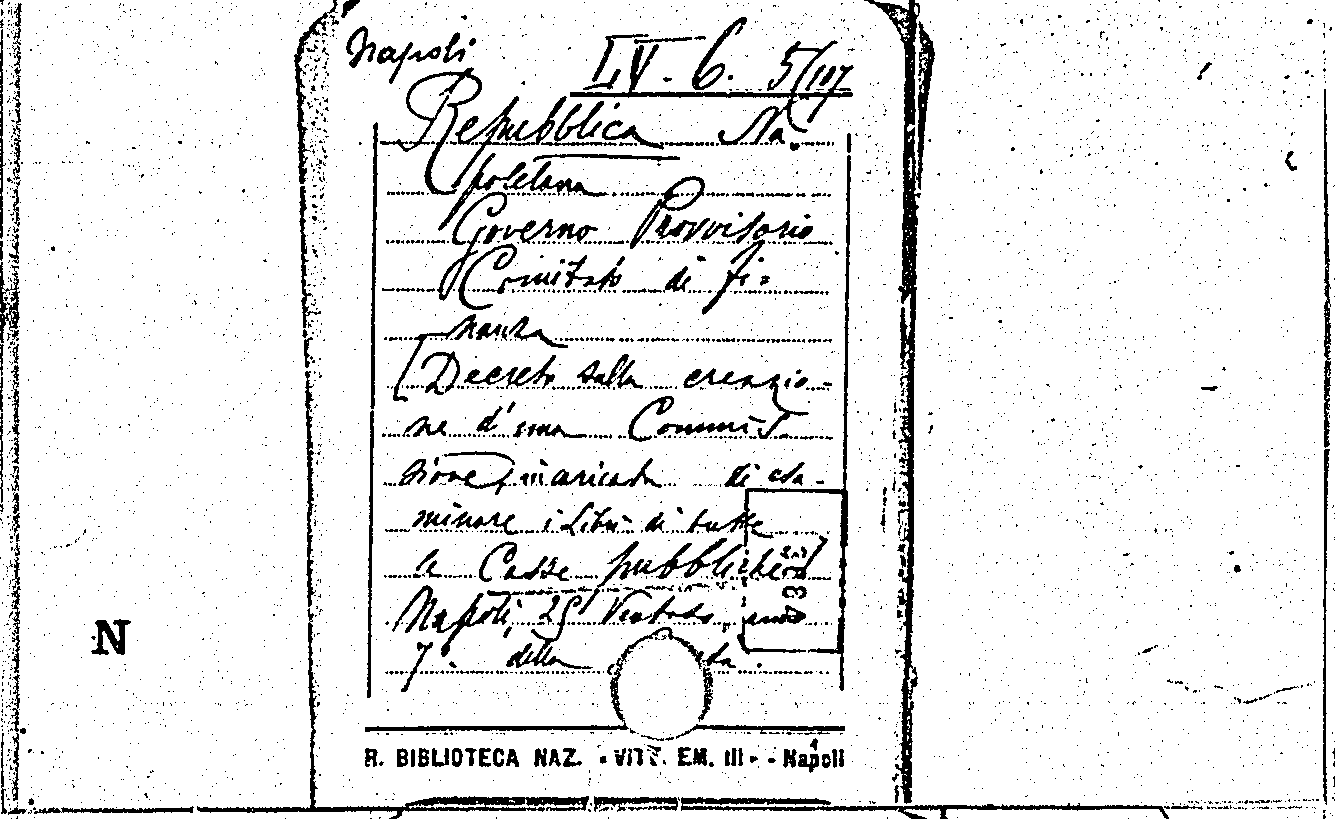 Napoli
LV. 6. 5/117
Repubblica Na-
poletana
Governo Provvisorio
Comitato di Fi-
nanza
[Decreto sulla creazio-
ne d'una Commis-
sione, incaricata di esa-
minare i Libri di tutte
le Casse pubbliche]
Napoli, 25 Ventoso, anno
7°. della
N
R. BIBLIOTECA NAZ. - VITT. EM. III - - Napoli